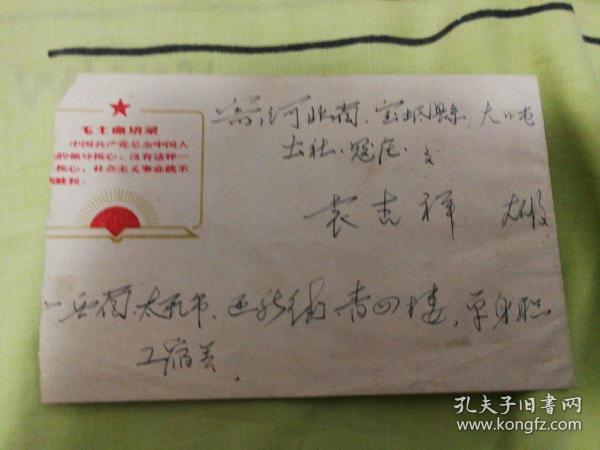 毛主席语录
中国共产党是全中国人
的领导核心。没有这样一
核心，社会主义事业就不
胜利。
寄：河北省、宝坻县、大口屯
公社、冠庄、交
袁吉祥 大收
西省、太原市、
青四楼，单身职
工宿
孔夫子旧书网
www.kongfz.com